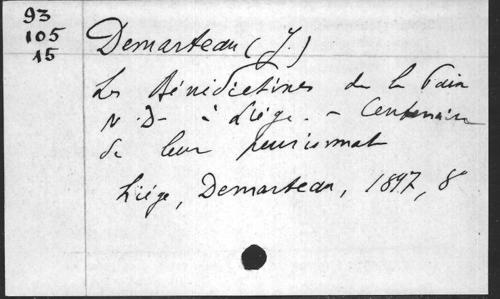 93
105
15
Demarteau (J.)
Les Bénédictines de la Paix
N.D. à Liége. - Centenaire
de leur pensionnat
Liége, Demarteau, 1897, 8°